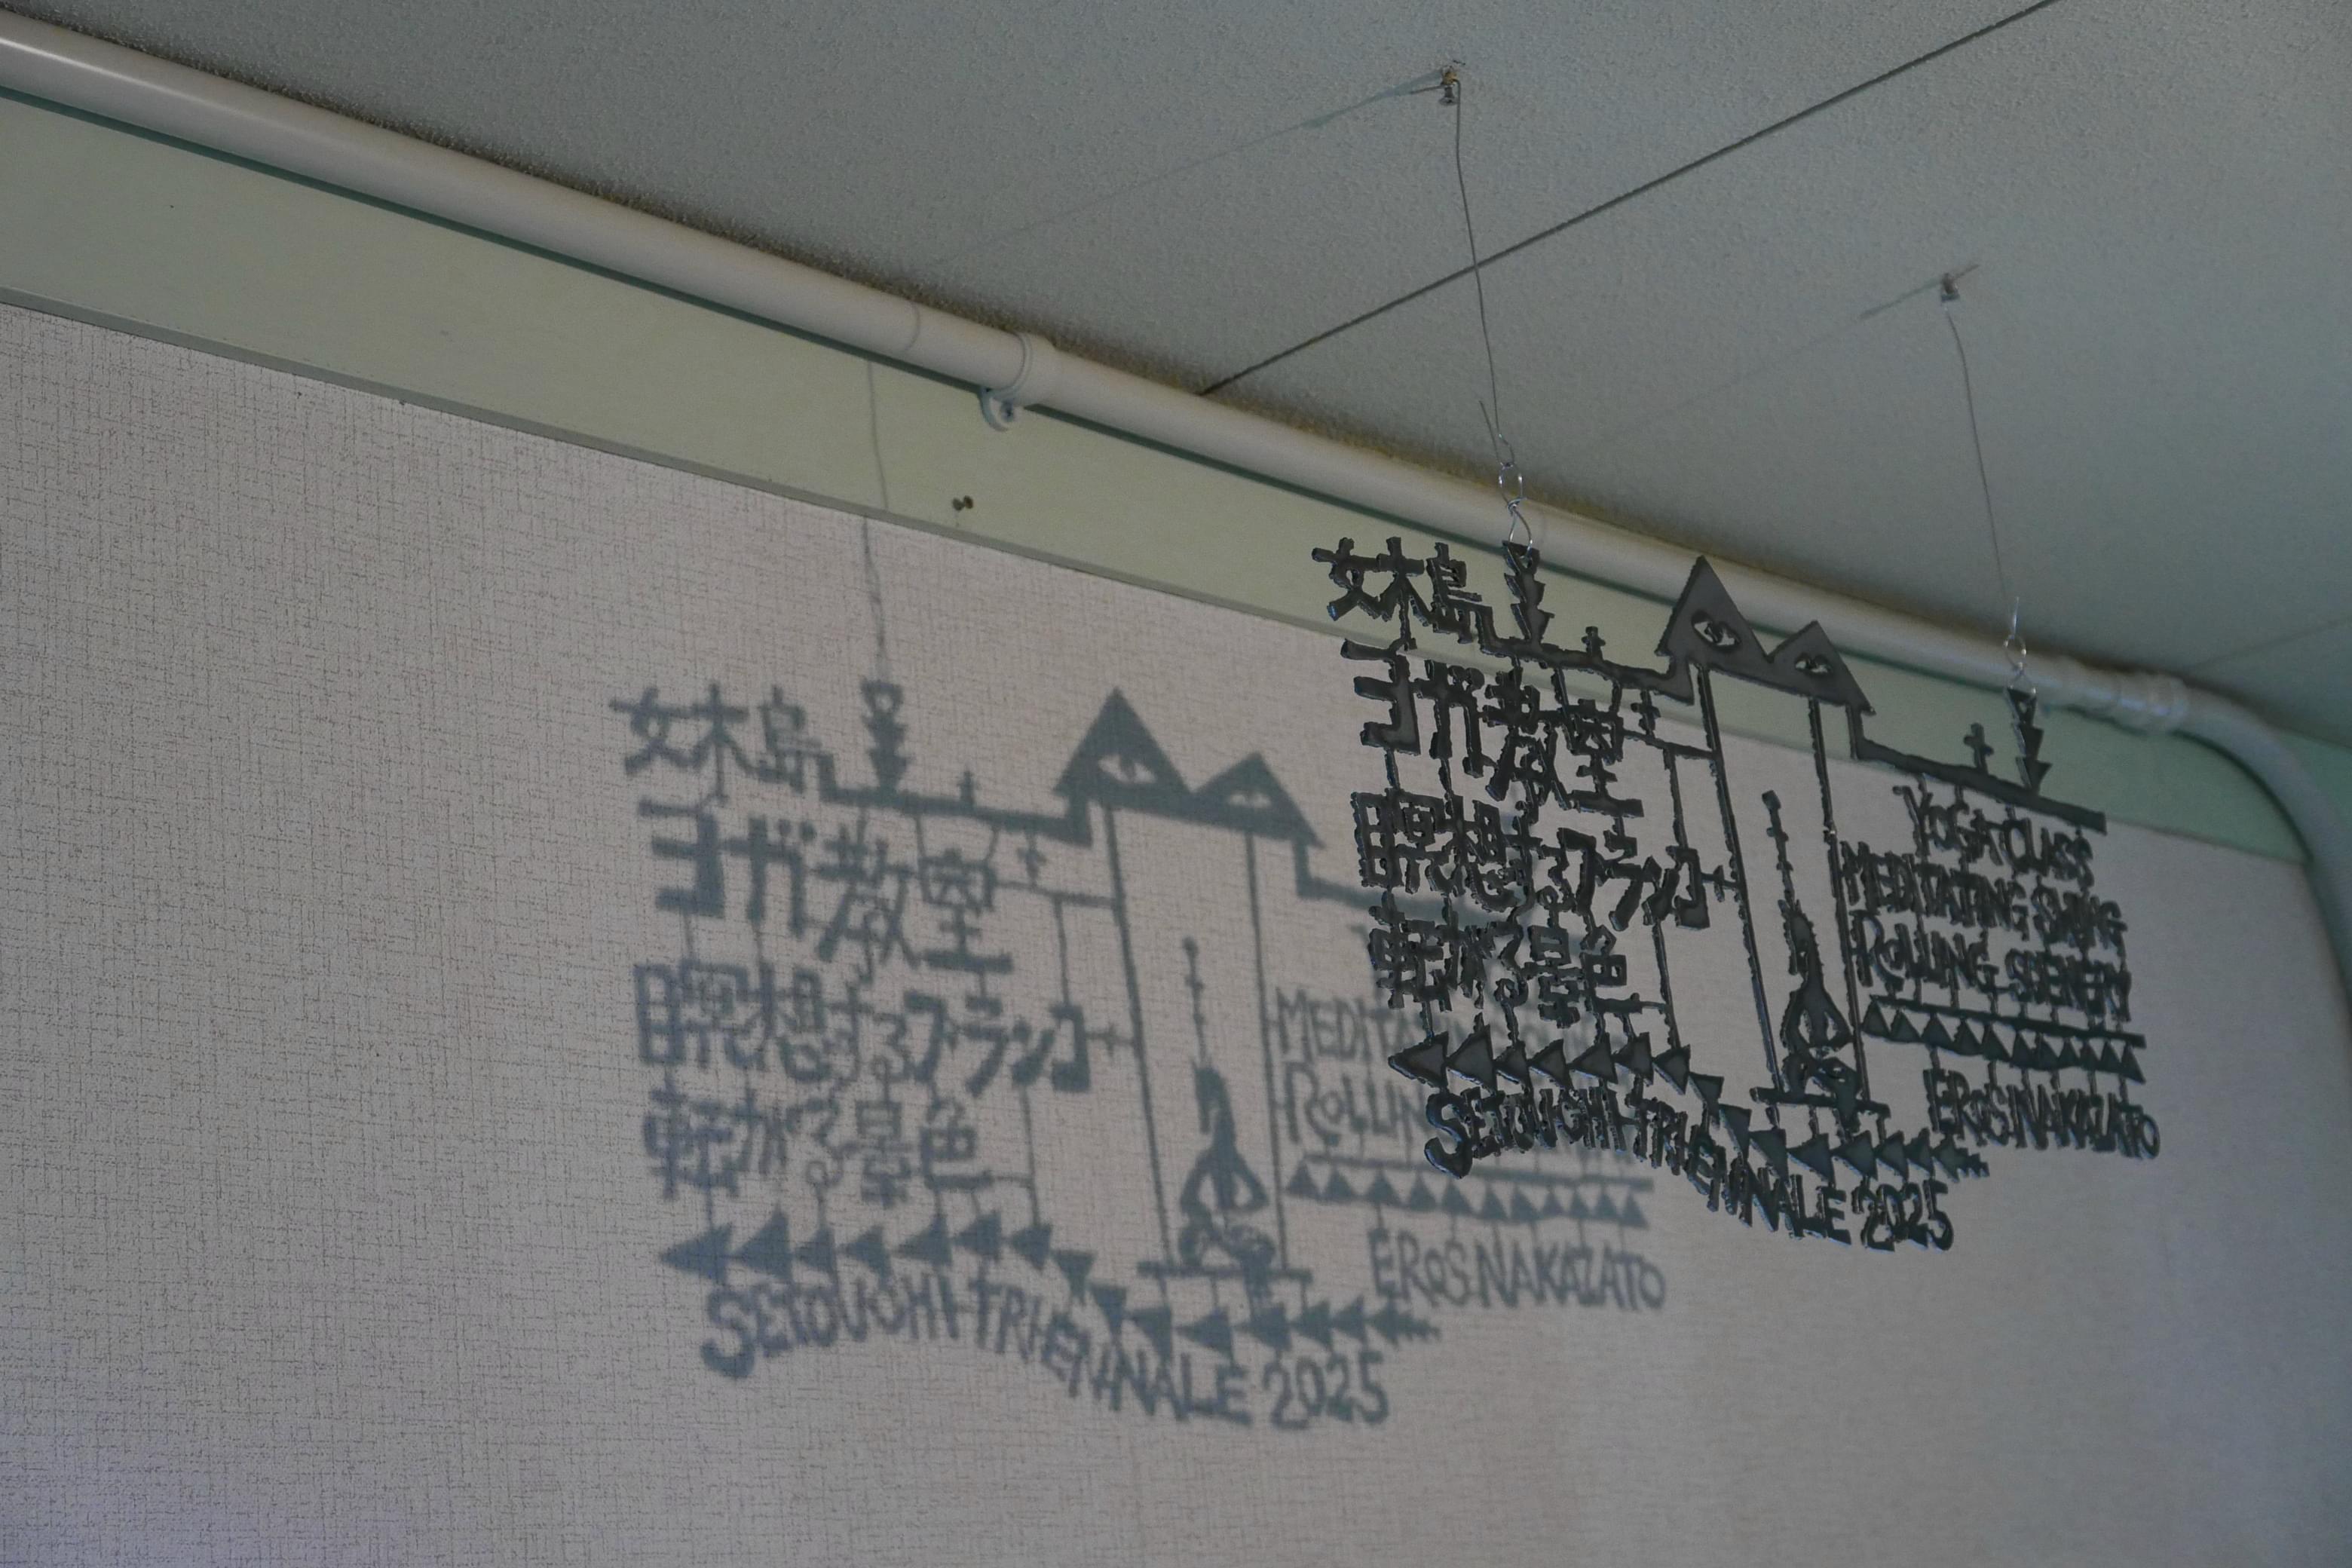 女木島
ヨガ教室
瞑想するブランコ
転がる景色
YOGA CLASS
MEDITATING SWING
ROLLING SCENERY
EROS NAKAZATO
SETOUCHI TRIENNALE 2025
女木島
ヨガ教室
瞑想するブランコ
転がる景色
MEDITA
ROLLIN
EROS NAKAZATO
SETOUCHI TRIENNALE 2025